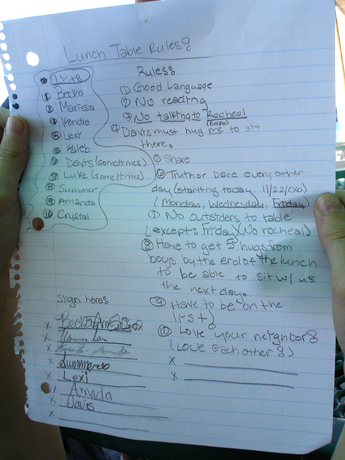 Lunch Table Rules:
List:
Marissa
Kendra
Lexi
Kaleb
Davis (sometimes)
Luke (sometimes)
Summer
Amanda
Crystal
Rules:
① Good Language
② No reading
③ No talking to Rocheal
④ Davis must hug me to sit
there.
⑤ Share
⑥ Truth or Dare every other
day (starting today 11/22/06)
(Monday, Wednesday, Friday)
⑦ No outsiders to table
(except Friday) (No rocheal)
⑧ Have to get 5 hugs from
boys by the end of the lunch
to be able to sit w/ us
the next day.
⑨ Have to be on the
list!
⑩ Love your neighbor:
(Love each other:)
Sign here:
x
x
x
x
x Lexi
x Amada
x Davis
x
x
x